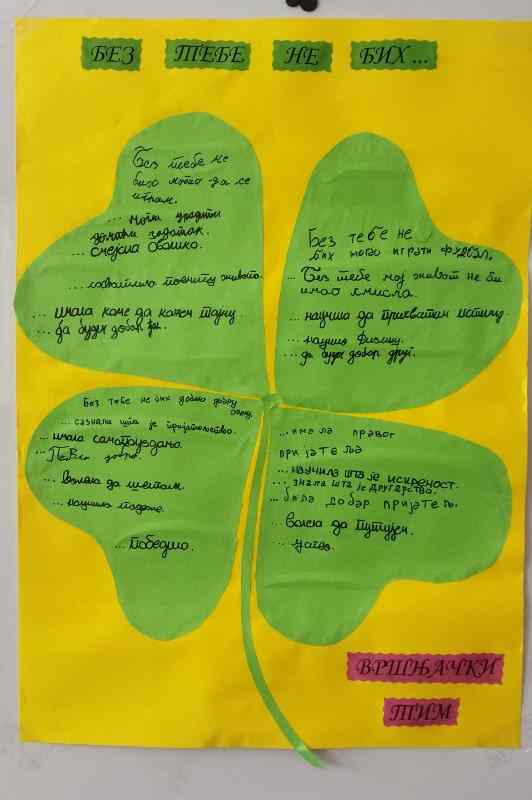 БЕЗ ТЕБЕ НЕ БИХ...
Без тебе не
бих могао да се
играм.
... могли урадити
домаћи задатак.
... смејала оволико.
... схватила поенту живота.
... имала коме да кажем тајну.
... да будем добар ђак.
Без тебе не
бих могао играти фудбал.
... Без тебе мој живот не би
имао смисла.
... научила да прихватим истину.
... научио физику.
... да будем добар друг.
Без тебе не бих добио добру
оцену.
... сазнала шта је пријатељство.
... имала самопоуздања.
... добро.
... волела да шетам.
... научила
... победио.
... имала правог
пријатеља
... научила шта је искреност.
... знала шта је другарство.
... била добар пријатељ.
... волела да путујем.
...
ВРШЊАЧКИ
ТИМ